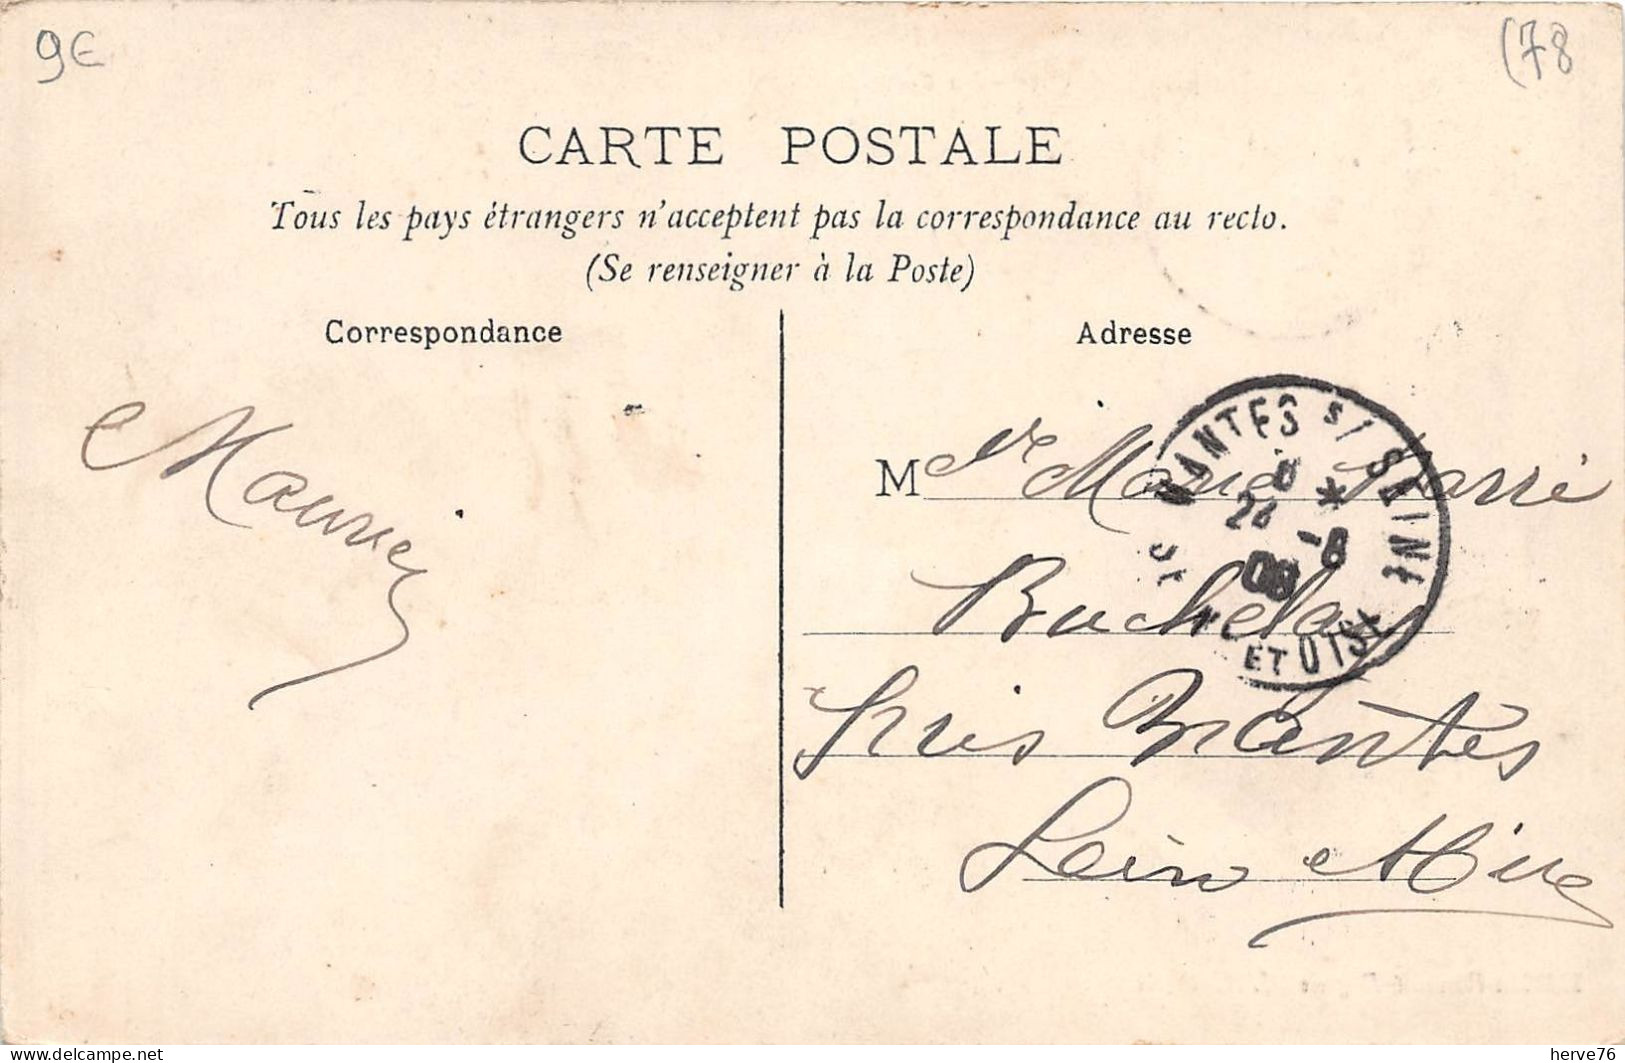 9€
(78
CARTE POSTALE
Tous les pays étrangers n'acceptent pas la correspondance au recto.
(Se renseigner à la Poste)
Correspondance
Adresse
MANTES s/ SEINE
* 
24 -8
08
ET OISE
M elle Maria
Buchelay
Près Mantes
Seine et Oise
delcampe.net
herve76